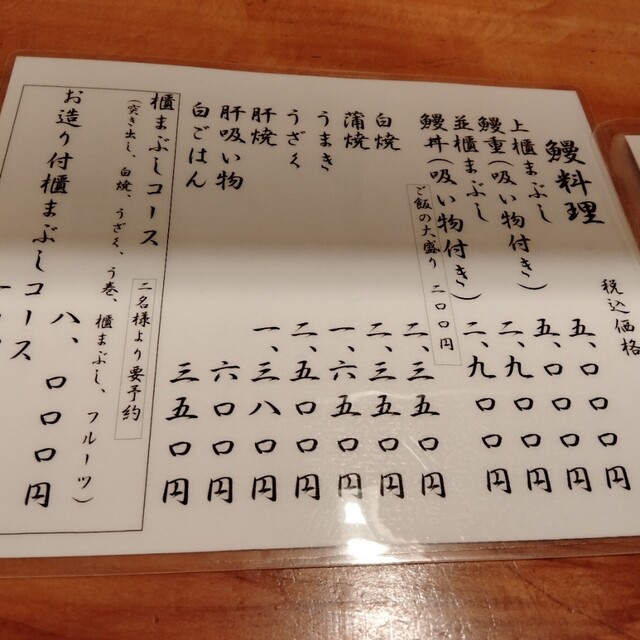 税込価格
鰻料理
上櫃まぶし 五、〇〇〇円
鰻重(吸い物付き) 五、〇〇〇円
並櫃まぶし 二、九〇〇円
鰻丼(吸い物付き) 二、九〇〇円
ご飯の大盛り 二〇〇円
白焼 二、三五〇円
蒲焼 二、三五〇円
うまき 一、六五〇円
うざく 二、五〇〇円
肝焼 一、三八〇円
肝吸い物 六〇〇円
白ごはん 三五〇円
櫃まぶしコース
二名様より要予約
(突き出し、白焼、うざく、う巻、櫃まぶし、フルーツ)
八、〇〇〇円
お造り付櫃まぶしコース